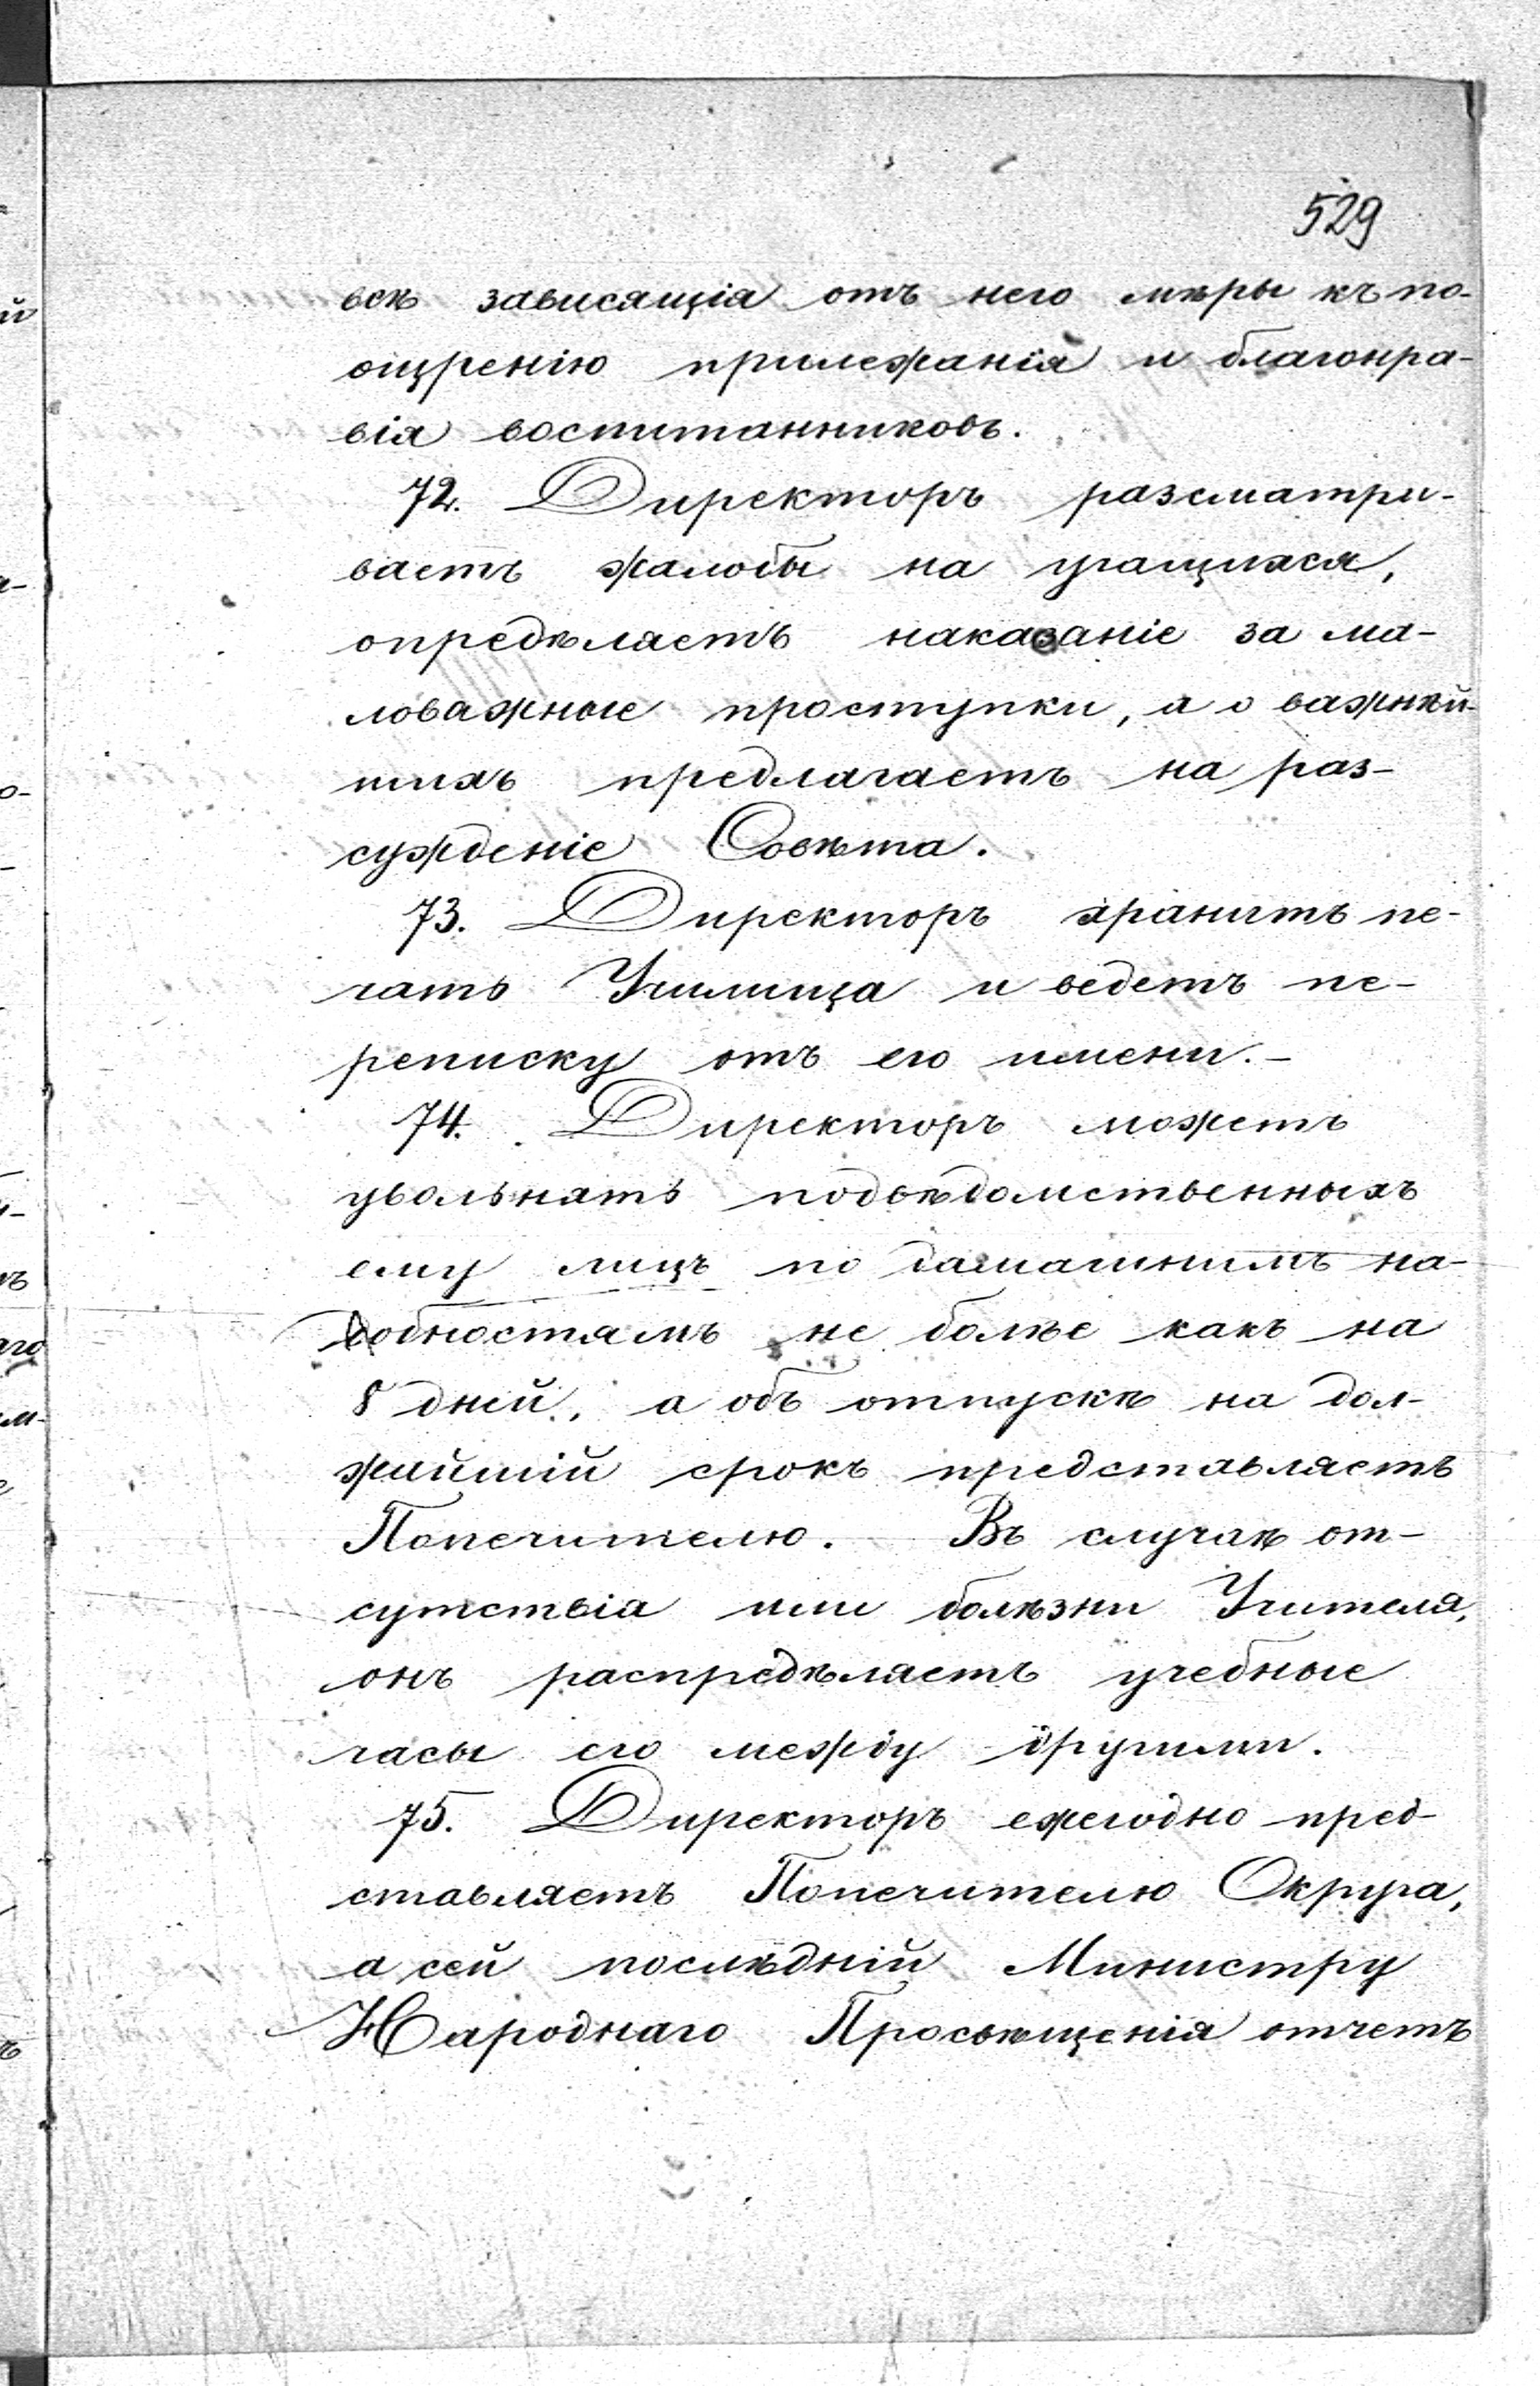 529
всѣ зависящія отъ него мѣры къ по-
ощренію прилежанія и благонра-
вія воспитанниковъ.
72. Директоръ разсматри-
ваетъ жалобы на учащихся,
опредѣляетъ наказаніе за ма-
ловажные проступки, а о важнѣй-
шихъ предлагаетъ на раз-
сужденіе Совѣта.
73. Директоръ хранитъ пе-
чать Училища и ведетъ пе-
реписку отъ его имени.-
74. Директоръ можетъ
увольнять подвѣдомственныхъ
ему лицъ по домашнимъ на-
добностямъ не болѣе какъ на
8 дней, а объ отпускѣ на дол-
жайшій срокъ представляетъ
Попечителю. Въ случаѣ от-
сутствія или болѣзни Учителя,
онъ распредѣляетъ учебные
часы его между другими.
75. Директоръ ежегодно пред-
ставляетъ Попечителю Округа,
а сей послѣдній Министру
Народнаго Просвѣщенія отчетъ